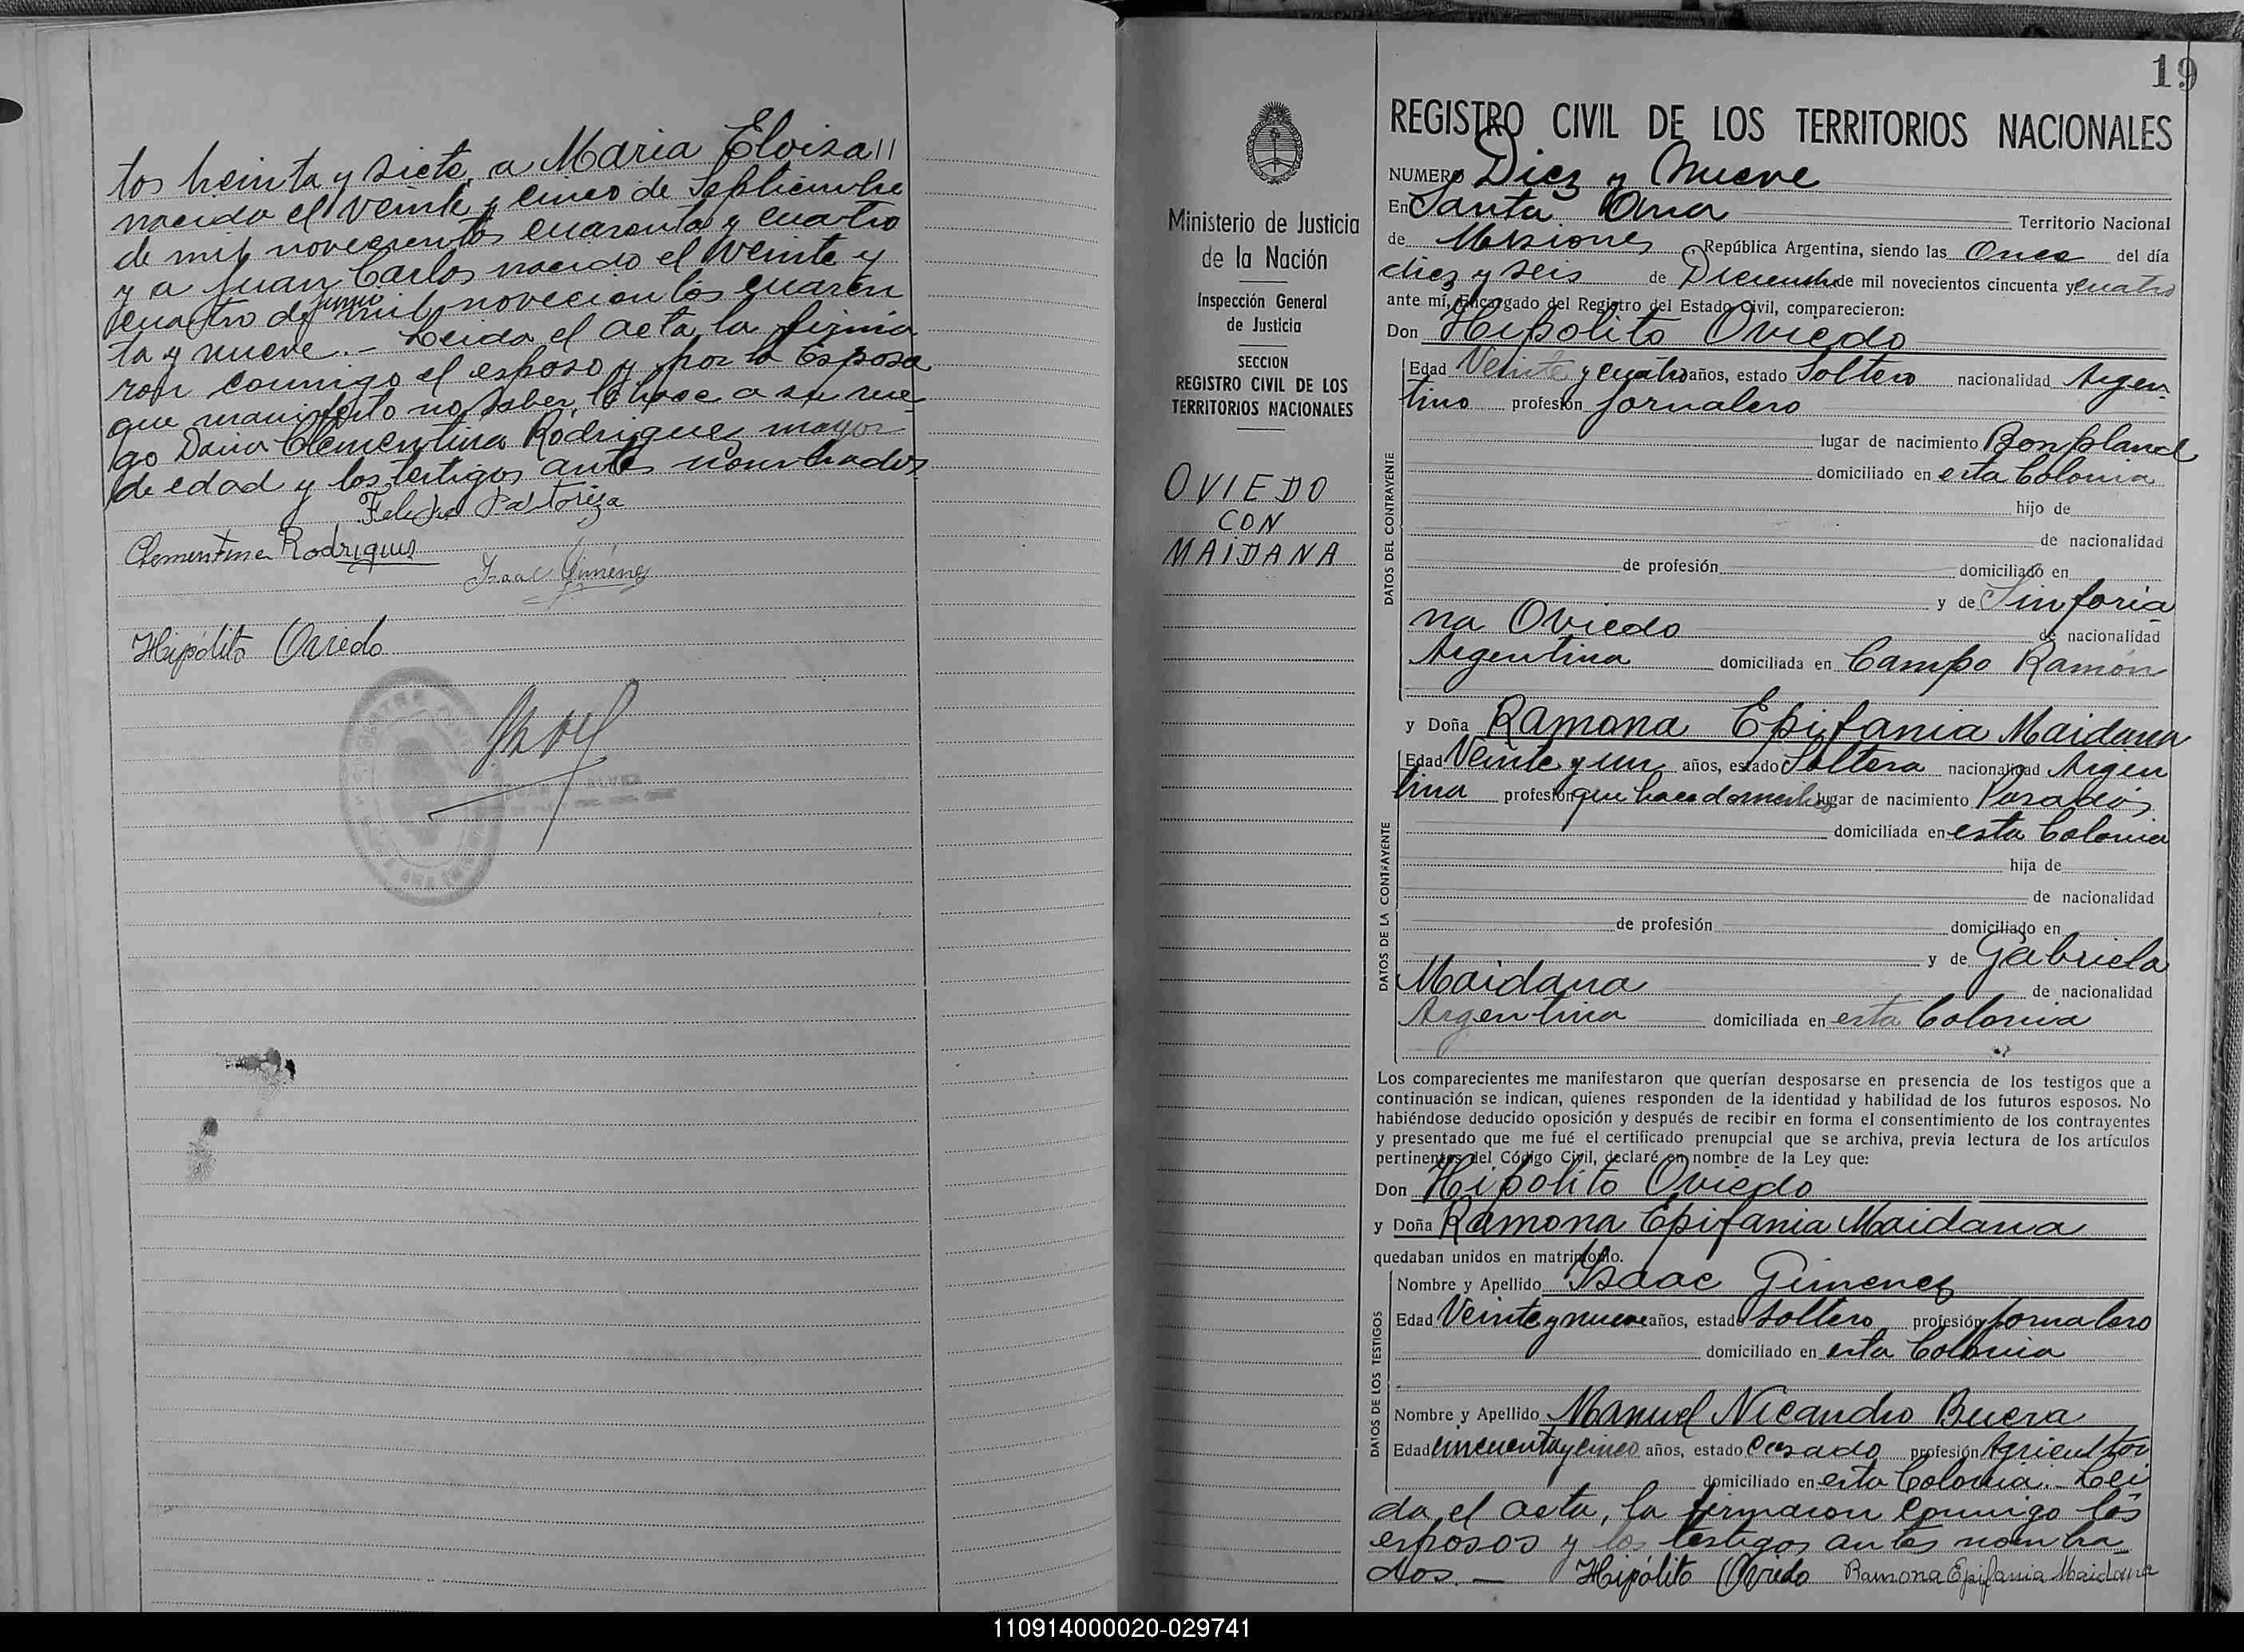 tos treinta y siete, a Maria Eloisa
nacida el veinte y cinco de Septiembre
de mil novecientos cuarenta y cuatro
y a Juan Carlos nacido el veinte y
cuatro de junio mil novecientos cuaren
ta y nueve.- Leida el acta, la firma
ron conmigo el esposo y por la Esposa
que manifesto no saber, lo hace a su rue-
go Doña Clementina Rodriguez mayor
de edad y los testigos antes nombrados.
Pastoriza
Clementina Rodrigues
Isaac Giménez
Hipólito Oviedo
19
REGISTRO CIVIL DE LOS TERRITORIOS NACIONALES
Ministerio de Justicia
de la Nación
Inspección General
de Justicia
SECCION
REGISTRO CIVIL DE LOS
TERRITORIOS NACIONALES
OVIEDO
CON
MAIDANA
NUMERO Diez y Nueve
En Santa Ana Territorio Nacional
de Misiones, República Argentina, siendo las Once del día
diez y seis de Diciembre de mil novecientos cincuenta y cuatro
ante mí, Encargado del Registro del Estado Civil, comparecieron:
Don Hipolito Oviedo
DATOS DEL CONTRAYENTE
Edad Veinte y cuatro años, estado Soltero nacionalidad Argen-
tino profesión jornalero
lugar de nacimiento Bonpland
domiciliado en esta Colonia
hijo de
de nacionalidad
de profesión domiciliado en
y de Sinforia-
na Oviedo de nacionalidad
Argentina domiciliada en Campo Ramón
y Doña Ramona Epifania Maidana
DATOS DE LA CONTRAYENTE
Edad Veinte y un años, estado Soltera nacionalidad Argen
tina profesión que hace domesticos lugar de nacimiento Posadas
domiciliada en esta Colonia
hija de
de nacionalidad
de profesión domiciliado en
y de Gabriela
Maidana de nacionalidad
Argentina domiciliada en esta Colonia
Los comparecientes me manifestaron que querían desposarse en presencia de los testigos que a
continuación se indican, quienes responden de la identidad y habilidad de los futuros esposos. No
habiéndose deducido oposición y después de recibir en forma el consentimiento de los contrayentes
y presentado que me fué el certificado prenupcial que se archiva, previa lectura de los artículos
pertinentes del Código Civil, declaré en nombre de la Ley que:
Don Hipolito Oviedo
y Doña Ramona Epifania Maidana
quedaban unidos en matrimonio.
DATOS DE LOS TESTIGOS
Nombre y Apellido Isaac Gimenez
Edad Veinte y nueve años, estado soltero profesión jornalero
domiciliado en esta Colonia
Nombre y Apellido Manuel Nicandro Buera
Edad cincuenta y cinco años, estado casado profesión Agricultor
domiciliado en esta Colonia.- Lei
da el acta, la firmaron conmigo los
esposos y los testigos antes nombra-
dos.- Hipólito Oviedo Ramona Epifania Maidana
110914000020-029741